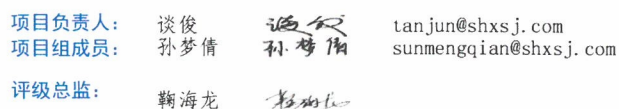 项目负责人： 谈俊 谈俊 tanjun@shxsj.com
项目组成员： 孙梦倩 孙梦倩 sunmengqian@shxsj.com
评级总监： 鞠海龙 鞠海龙